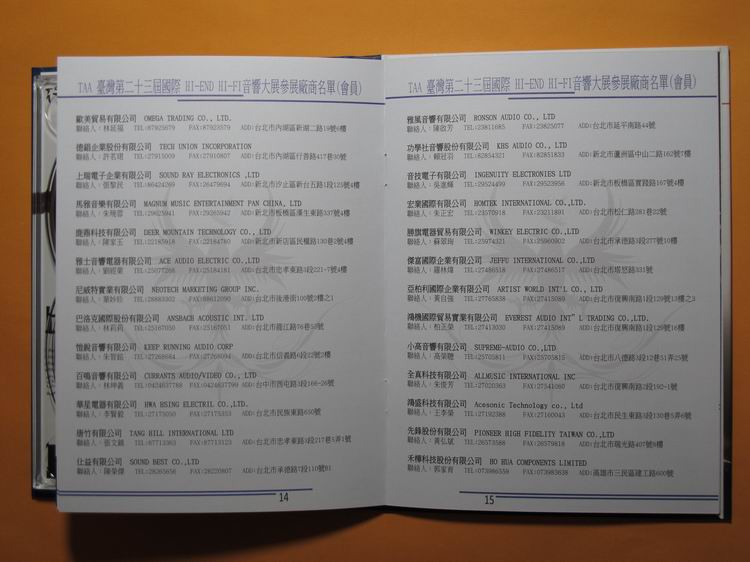 TAA 臺灣第二十三屆國際 HI-END HI-FI音響大展參展廠商名單(會員)
歐美貿易有限公司 OMEGA TRADING CO., LTD.
聯絡人:林延福 TEL:87925679 FAX:87923579 ADD:台北市內湖區新湖二路19號6樓
德錩企業股份有限公司 TECH UNION INCORPORATION
聯絡人:許茗珺 TEL:27915009 FAX:27910807 ADD:台北市內湖區行善路417巷30號
上瑞電子企業有限公司 SOUND RAY ELECTRONICS ,LTD
聯絡人:張黎民 TEL:86424269 FAX:26479694 ADD:新北市汐止區新台五路1段125號4樓
馬雅音樂有限公司 MAGNUM MUSIC ENTERTAINMENT PAN CHINA, LTD
聯絡人:朱曉蓉 TEL:29625941 FAX:29265942 ADD:新北市板橋區漢生東路337號4樓
鹿壽科技有限公司 DEER MOUNTAIN TECHNOLOGY CO., LTD
聯絡人:陳家玉 TEL:22185918 FAX:22184780 ADD:新北市新店區民權路130巷2號4樓
雅士音響電器有限公司 ACE AUDIO ELECTRIC CO., LTD
聯絡人:劉經業 TEL:25077268 FAX:25184181 ADD:台北市忠孝東路3段221-7號4樓
尼威特實業有限公司 NEOTECH MARKETING GROUP INC.
聯絡人:葉妙松 TEL:26883302 FAX:88612090 ADD:台北市後港街100號2樓之1
巴洛克國際股份有限公司 ANSBACH ACOUSTIC INT. LTD
聯絡人:林莉莉 TEL:25167050 FAX:25167051 ADD:台北市龍江路76巷53號
愷銳音響有限公司 KEEP RUNNING AUDIO CORP
聯絡人:朱智銘 TEL:27268664 FAX:27268094 ADD:台北市信義路6段22號2樓
百鳴音響有限公司 CURRANTS AUDIO/VIDEO CO., LTD
聯絡人:林紳義 TEL:0424637788 FAX:0424637799 ADD:台中市西屯路3段166-26號
華星電器有限公司 HWA HSING ELECTRIL CO.,LTD.
聯絡人:李賢毅 TEL:27175050 FAX:27175353 ADD:台北市民族東路650號
唐竹有限公司 TANG HILL INTERNATIONAL LTD
聯絡人:張文鎮 TEL:87713363 FAX:87713123 ADD:台北市忠孝東路3段217巷5弄1號
仕益有限公司 SOUND BEST CO.,LTD
聯絡人:陳榮傑 TEL:28265656 FAX:28220807 ADD:台北市承德路7段110號B1
14
TAA 臺灣第二十三屆國際 HI-END HI-FI音響大展參展廠商名單(會員)
雅風音響有限公司 RONSON AUDIO CO., LTD
聯絡人:陳啟芳 TEL:23811685 FAX:23825077 ADD:台北市延平南路44號
功學社音響股份有限公司 KHS AUDIO CO., LTD
聯絡人:賴冠羽 TEL:82854321 FAX:82851833 ADD:新北市蘆洲區中山二路162號7樓
音技電子有限公司 INGENUITY ELECRONIES LTD
聯絡人:吳嘉輝 TEL:29524499 FAX:29523956 ADD:新北市板橋區實踐路167號4樓
宏業國際有限公司 HOMTEK INTERNATIONAL CO.,LTD.
聯絡人:朱正宏 TEL:23570918 FAX:23211891 ADD:台北市松仁路281巷22號
勝旗電器貿易有限公司 WINKEY ELECTRIC CO., LTD
聯絡人:蘇翠珣 TEL:25974321 FAX:25960902 ADD:台北市承德路3段277號10樓
傑富國際企業有限公司 JEFFU INTERNATIONAL CO., LTD
聯絡人:羅林煒 TEL:27486518 FAX:27486517 ADD:台北市塔悠路331號
亞柏利國際企業有限公司 ARTIST WORLD INT'L CO., LTD
聯絡人:黃自強 TEL:27765838 FAX:27415089 ADD:台北市復興南路1段129號13樓之3
鴻機國際貿易實業有限公司 EVEREST AUDIO INT"L TRADING CO.,LTD.
聯絡人:柏正榮 TEL:27413030 FAX:27415089 ADD:台北市復興南路1段129號16樓
小高音響有限公司 SUPREME-AUDIO CO., LTD
聯絡人:高榮聰 TEL:25705811 FAX:25705815 ADD:台北市八德路3段12巷51弄25號
全真科技有限公司 ALLMUSIC INTERNATIONAL INC
聯絡人:朱俊芳 TEL:27020363 FAX:27541080 ADD:台北市復興南路2段192-1號
鴻盛科技有限公司 Acesonic Technology co., Ltd
聯絡人:王李榮 TEL:27192388 FAX:27160043 ADD:台北市民生東路3段130巷5弄6號
先鋒股份有限公司 PIONEER HIGH FIDELITY TAIWAN CO.,LTD
聯絡人:黃弘斌 TEL:26573588 FAX:26579818 ADD:台北市瑞光路407號8樓
禾樺科技股份有限公司 HO HUA COMPONENTS LIMITED
聯絡人:郭家育 TEL:073986559 FAX:073983638 ADD:高雄市三民區建工路600號
15